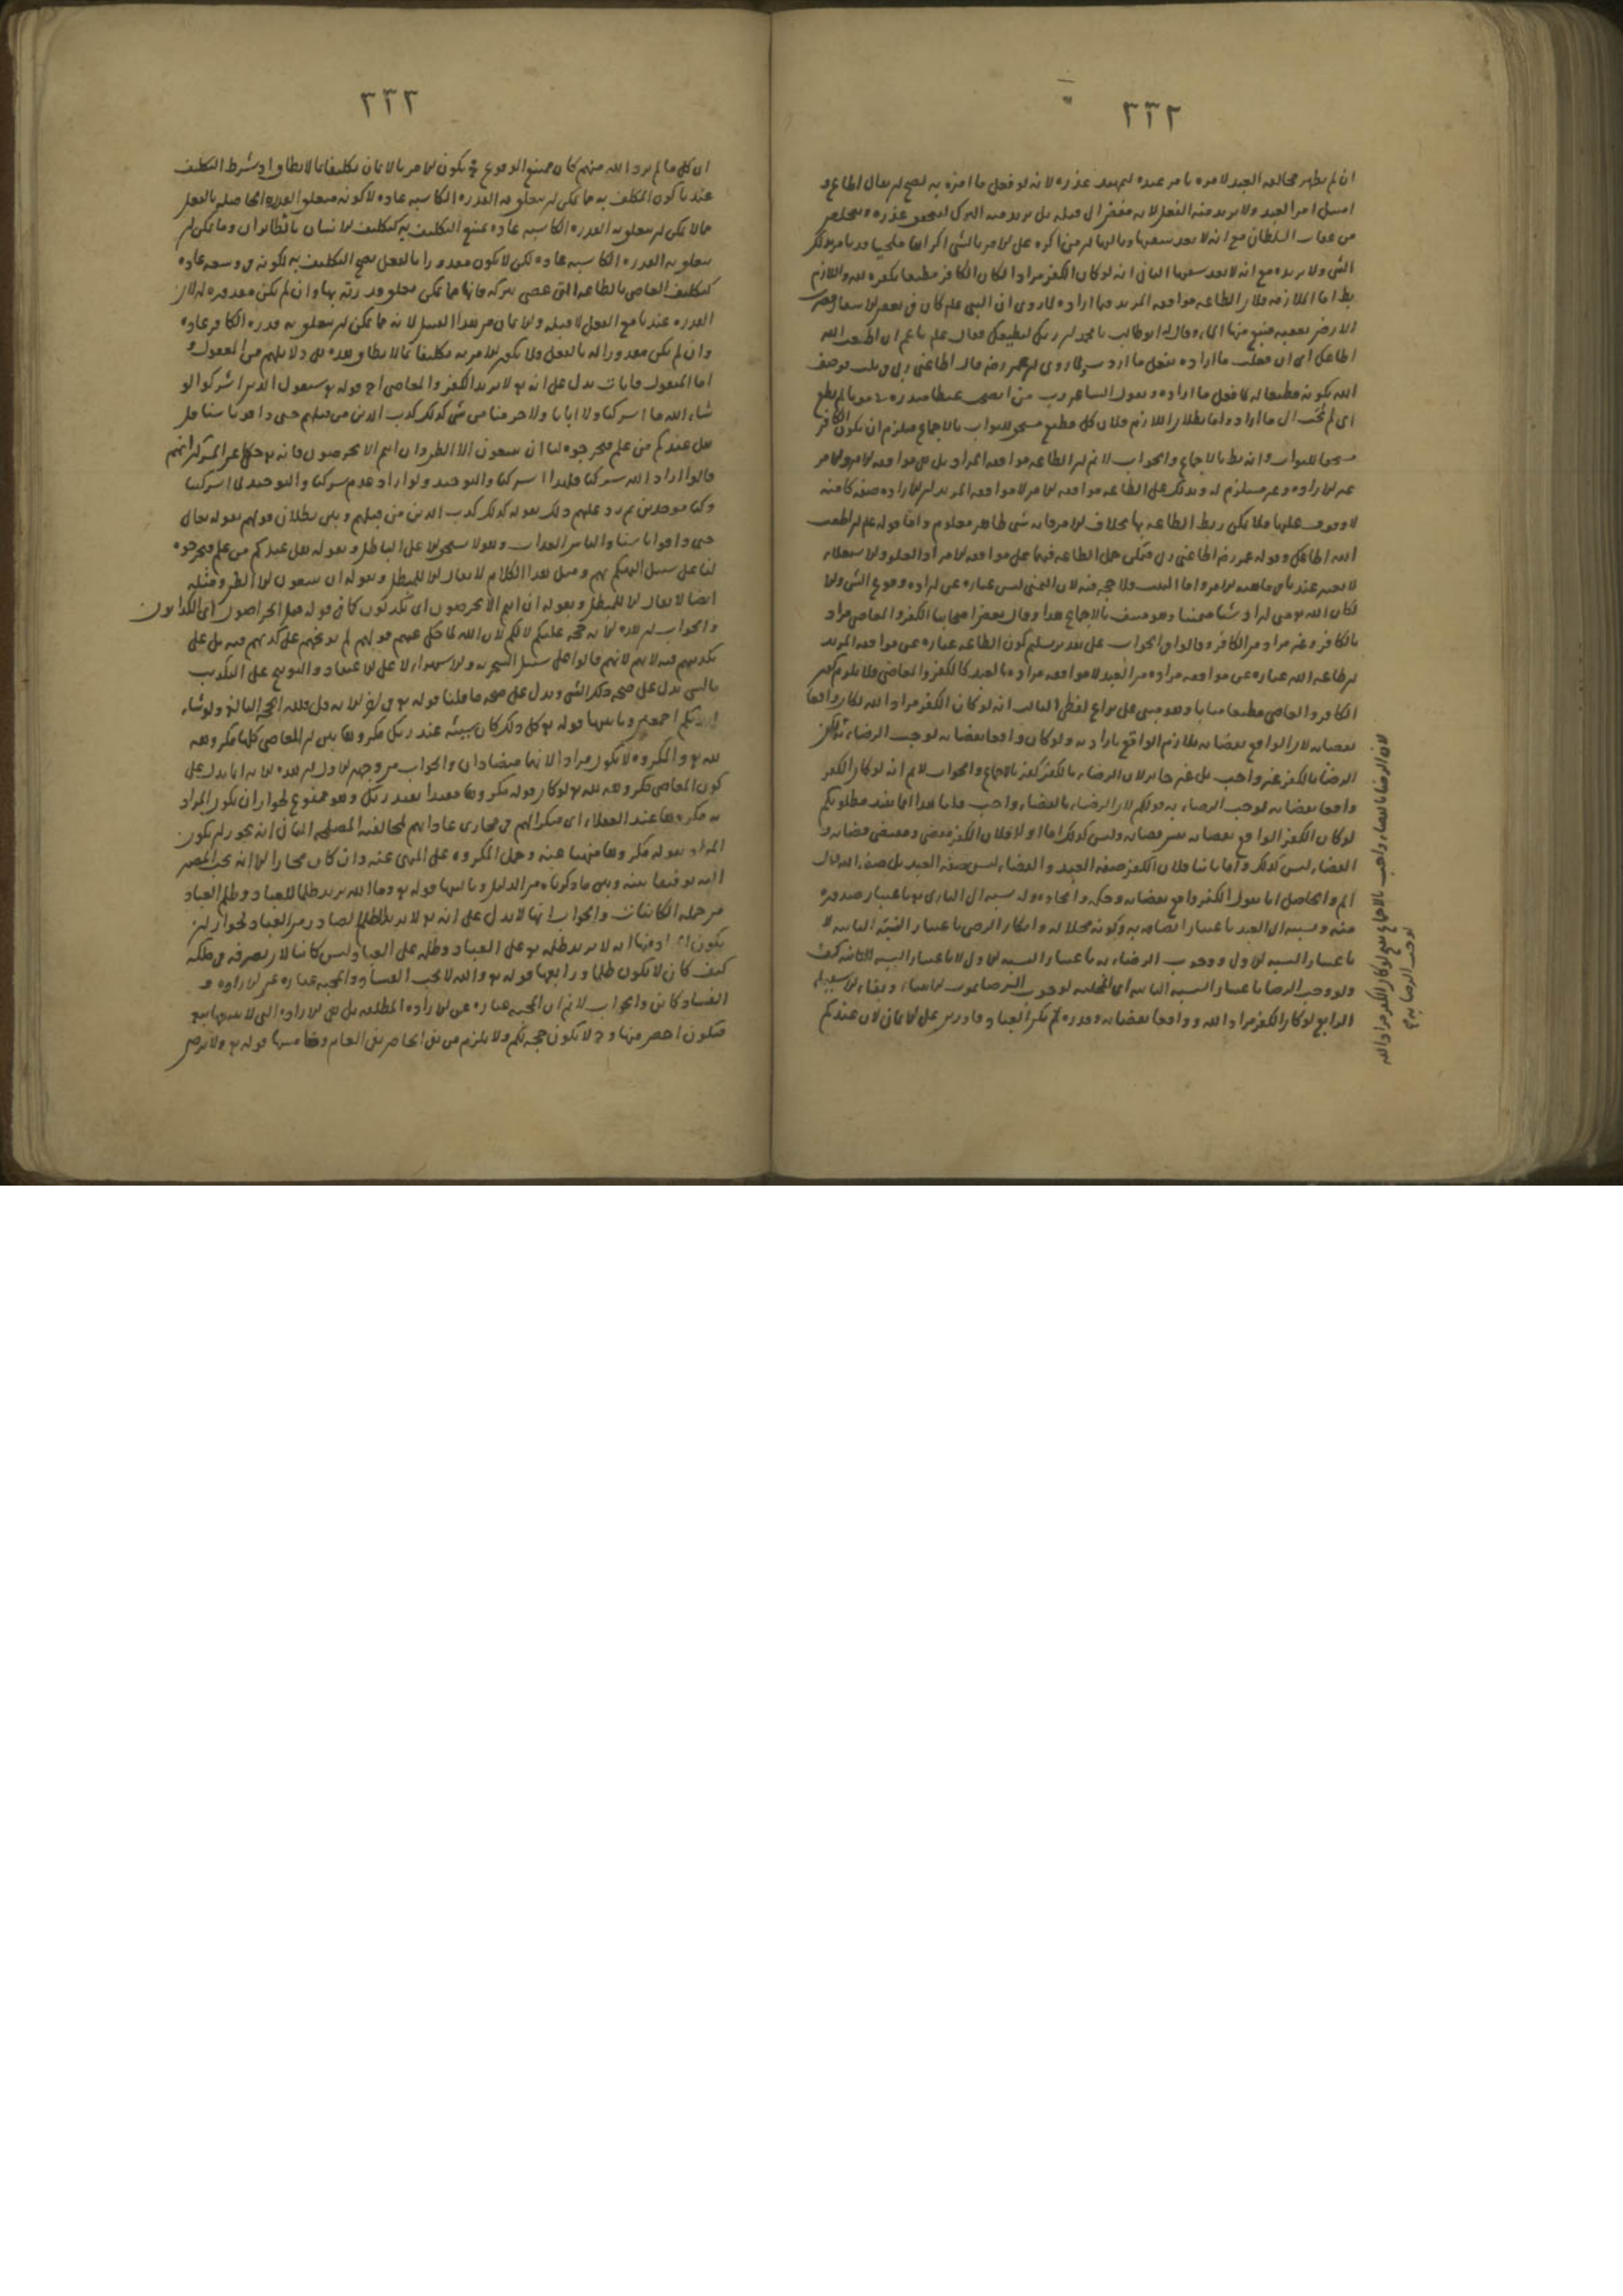 ٢٣٢
ان لم يظهر مخالفة العبد لامره يامر عبده ليمهد عذره لانه لو فعل ما امره به لصح ان يقال اطاع و
امتثل امر العبد ولا يريد منه الفعل لانه مفض الى قتله بل يريد منه الترك ليتحقق عذره ويتخلص
من عقاب السلطان مع انه لا يعد سفيها وثالثها ان من اكره على الامر بالشي اكراها ملجيا قد يامر بذلك
الشي ولا يريده مع انه لا يعد سفيها الثاني انه لو كان الكفر مرادا لكان الكافر مطيعا بكفره لله واللازم
بط اما الملازمة فلان الطاعة موافقة المريد فيما اراده لما روى ان النبي علم كان في بعض الاسفار فضرب
الارض بعقبه فنبع منها الماء وقال له ابو طالب يا محمد ان ربك ليطيعك فقال علم يا عم ان اطعت الله
اطاعك اي ان فعلت ما اراده يفعل ما اردت
الله بكونه مطيعا له كما فعل ما اراده وبقول الشاعر رب من انضجت غيظا صدره موتا لم يطع
اي لم يجب الى ما اراد واما بطلان اللازم فلان كل مطيع مستحق للثواب بالاجماع فيلزم ان يكون الكافر
مستحقا للثواب وانه بط بالاجماع والجواب لا نم ان الطاعة موافقة المراد بل هي موافقة الامر والامر
غير الارادة وغير مستلزم له ويدلك على الطاعة موافقة الامر لا موافقة المريد ان الارادة صفة كامنة
لا وقوف عليها فلا يمكن ربط الطاعة بها بخلاف الامر فانه شي ظاهر معلوم واما قوله علم ان اطعت
الله اطاعك
لا يعتبر عندنا في ماهية الامر واما البيت فلا حجة فيه لان التمني ليس عبارة عن ارادة وقوع الشي ولا
لكان الله تع متى اراد شيا متمنيا وهو منتف بالاجماع هذا وقال بعض اصحابنا الكفر والمعاصي مراد
بالكافر وغير مراد من الكافر وقالوا في الجواب على تقدير تسليم كون الطاعة عبارة عن موافقة المريد
ان طاعة الله عبارة عن موافقة مراده من العبد لا موافقة مراده بالعبد كالكفر والمعاصي فلا يلزم كون
الكافر والعاصي مطيعا مثابا وهو مبني على نزاع لفظي الثالث انه لو كان الكفر مراد الله لكان واقعا
بقضايه لان الواقع بقضايه ملازم الواقع بارادته ولو كان واقعا بقضايه لوجب الرضاء به لكن
الرضا بالكفر غير واجب بل غير جايز لان الرضاء بالكفر كفر بالاجماع والجواب لا نم انه لو كان الكفر
واقعا بقضايه لوجب الرضاء به قولكم لان الرضاء بالقضاء واجب قلنا هذا انما يفيد مطلوبكم
لو كان الكفر الواقع بقضايه نفس قضايه وليس كذلك اما اولا فلان الكفر مقضي ومقتضى قضايه و
القضاء ليس كذلك واما ثانيا فلان الكفر صفة العبد والقضاء ليس صفة العبد بل صفة الله تعالى
الم والحاصل انا نقول الكفر واقع بقضايه وحكمه وايجاده وله نسبة الى الباري تع باعتبار صدوره
منه ونسبة الى العبد باعتبار اتصافه به وكونه محلا له وانكار الرضي باعتبار النسبة الثانية لا
باعتبار النسبة الاولى ووجوب الرضاء به باعتبار النسبة الاولى لا باعتبار النسبة الثانية كيف
ولو وجب الرضا باعتبار النسبة الثانية اي المحلية لوجب الرضا بموت الانبياء وبقاء الاشقياء
الرابع لو كان الكفر مراد الله وواقعا بقضايه وقدره لم يكن العباد قادرين على الايمان لان عندكم
لان الرضا بالقضاء واجب بالاجماع لو كان الكفر مراد الله
لوجب الرضا به
٢٣٣
ان كل ما لم يرد الله منهم كان ممتنع الوقوع فح يكون الامر بالايمان تكليفا بما لا يطاق اذ شرط التكليف
عندنا كون المكلف به ما يمكن ان يتعلق به القدرة الكاسبة عادة لا كونه متعلق القدرة الحاصلة بالفعل
فما لا يمكن ان يتعلق به القدرة الكاسبة عادة يمتنع التكليف به كتكليف الانسان بالطيران وما يمكن ان
يتعلق به القدرة الكاسبة عادة لكن لا يكون مقدورا بالفعل يصح التكليف به لكونه في وسعه عادة
كتكليف العاصي بالطاعة التي عصى بتركه فانها مما يمكن يتعلق قدرته بها وان لم يكن مقدورة له لان
القدرة عندنا مع الفعل لا قبله والايمان من هذا القبيل لانه مما يمكن ان يتعلق به قدرة الكافر عادة
وان لم يكن مقدورا له بالفعل فلا يكون الامر به تكليفا بما لا يطاق
اما المنقول فايات تدل على انه تع لا يريد الكفر والمعاصي اح قوله تع سيقول الذين اشركوا لو
شاء الله ما اشركنا ولا اباؤنا ولا حرمنا من شي كذلك كذب الذين من قبلهم حتى ذاقوا باسنا قل
هل عندكم من علم فتخرجوه لنا ان تتبعون الا الظن وان انتم الا تخرصون فانه تع حكى عن المشركين انهم
قالوا اراد الله شركنا فلهذا اشركنا والتوحيد ولو اراد عدم شركنا والتوحيد لما اشركنا
وكنا موحدين ثم رد عليهم ذلك بقوله كذلك كذب الذين من قبلهم وبين بطلان قولهم بقوله تعالى
حتى ذاقوا باسنا والباس العذاب وهو لا يستحق الا على الباطل وبقوله هل عندكم من علم فتخرجوه
لنا على سبيل التهكم بهم ومثل هذا الكلام لا يقال الا للمبطل وبقوله ان تتبعون الا الظن ومثله
ايضا لا يقال الا للمبطل وبقوله ان انتم الا تخرصون اي تكذبون كما في قوله قتل الخراصون اي الكذابون
والجواب ان هذه الاية حجة عليكم لا لكم لان الله لما حكى عنهم قولهم لم يوبخهم على كذبهم فيه بل على
تكذيبهم فيه لانهم قالوا على سبيل السخرية والاستهزاء لا على الاعتقاد والتوبيخ على التكذيب
بالشي يدل على صحة ذلك الشي ويدل على صحة ما قلنا قوله تع في اخر الاية قل فلله الحجة البالغة ولو شاء
لهديكم اجمعين وثانيها قوله تع كل ذلك كان سيئه عند ربك مكروها بين ان المعاصي كلها مكروهة
لله تع والمكروه لا يكون مرادا لانهما متضادان والجواب من وجهين الاول ان هذه الاية انما تدل على
كون المعاصي مكروهة لله تع لو كان قوله مكروها مقيدا بعند ربك وهو ممنوع لجواز ان يكون المراد
به مكروها عند العقلاء اي منكرا لهم في مجاري عاداتهم لمخالفته المصلحة الثاني انه يجوز ان يكون
المراد بقوله مكروها منهيا عنه وحمل المكروه على المنهي عنه وان كان مجازا الا انه يجب المصير
اليه توفيقا بينه وبين ما ذكرناه من الدليل وثالثها قوله تع وما الله يريد ظلما للعباد وظلم العباد
من جملة الكائنات والجواب انها لا تدل على انه تع لا يريد الظلم الصادر من العباد لجواز ان
يكون المراد منها انه لا يريد ظلمه تع على العباد وظلمه على العباد ليس كائنا لان تصرفه في ملكه
كيف كان لا يكون ظلما ورابعها قوله تع والله لا يحب الفساد والمحبة عبارة عن الارادة و
الفساد كائن والجواب لا نم ان المحبة عبارة عن الارادة المطلقة بل هي الارادة التي لا يتبعها تبعة
فتكون اخص منها وح لا يكون حجة لكم ولا يلزم من نفي الخاص نفي العام وخامسها قوله تع ولا يرضى